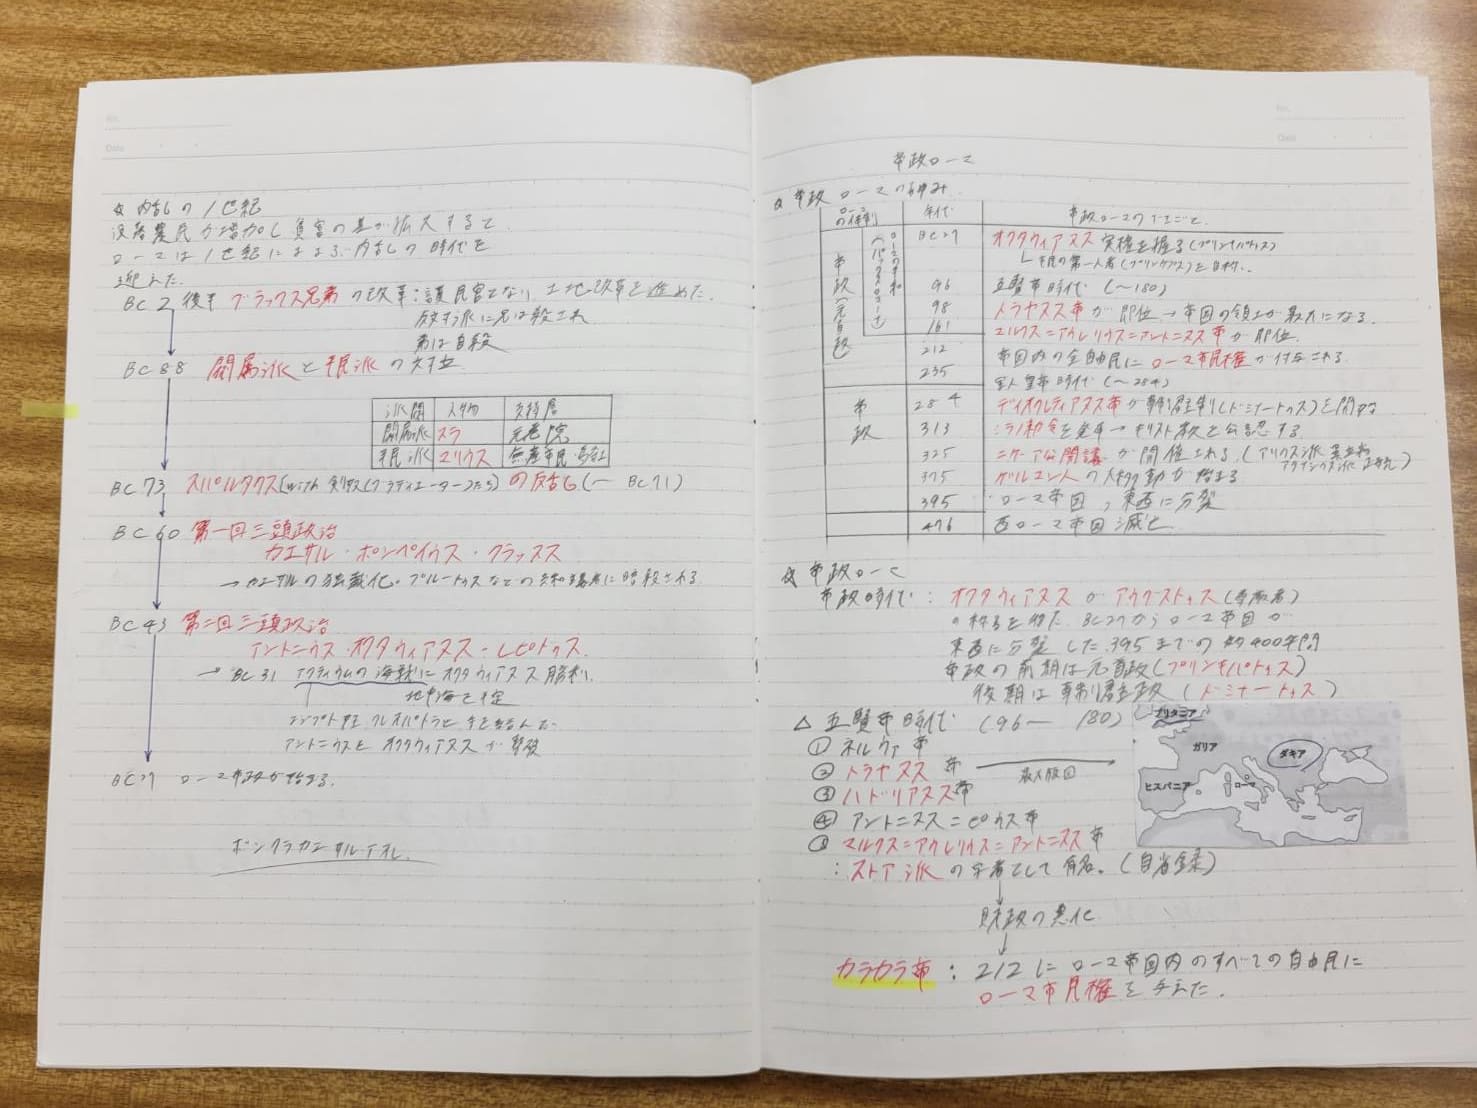 No.
Date
☆ 内乱の1世紀
没落農民が増加し貧富の差が拡大すると
ローマは1世紀におよぶ内乱の時代を
迎えた.
BC 2 後半 グラックス兄弟の改革:護民官となり土地改革を進めた.
反対派に兄は殺され
弟は自殺
BC 88 閥属派と平民派の対立
派閥 人物 支持層
閥属派 スラ 元老院
平民派 マリウス 無産市民・
BC 73 スパルタクス(with 剣奴(グラディエーター)たち)の反乱(― BC71)
BC 60 第一回三頭政治
カエサル・ポンペイウス・クラッスス
→カエサルの独裁化。ブルートゥスなどの共和主義者に暗殺される
BC 43 第二回三頭政治
アントニウス・オクタウィアヌス・レピドゥス
→ BC 31 アクティウムの海戦にオクタウィアヌス勝利.
地中海を
エジプト クレオパトラと手を結んだ
アントニウスとオクタウィアヌスが
BC27 ローマ帝政が始まる.
ポンクラカエサル アオレ.
No.
Date
帝政ローマ
☆ 帝政ローマの
ローマの体制 年代 帝政ローマのできごと
帝政(元首政) ローマの平和(パックスロマーナ)
BC27 オクタウィアヌス実権を握る(プリンキパトゥス)
└ 市民の第一人者(プリンケプス)を自称.
96 五賢帝時代 (~180)
98 トラヤヌス帝が即位→帝国の領土が最大になる.
161 マルクス=アウレリウス=アントニヌス帝が即位.
212 帝国内の全自由民にローマ市民権が付与される
235 軍人皇帝時代 (~284)
帝政
284 ディオクレティアヌス帝が専制君主制(ドミナートゥス)を開始
313 ミラノ勅令を発布→キリスト教を公認する
325 ニケーア公開議が開催される (アリウス派 異端 アタナシウス派 正統)
375 ゲルマン人の大移動が始まる
395 ローマ帝国, 東西に分裂
476 西ローマ帝国滅亡
☆ 帝政ローマ
帝政時代: オクタウィアヌスがアウグストゥス(尊厳者)
の称号を得た BC27からローマ帝国が
東西に分裂した 395 までの約400年間
帝政の前期は元首政(プリンキパトゥス)
後期は専制君主政 (ドミナートゥス)
△ 五賢帝時代 (96― 180)
① ネルウァ帝
② トラヤヌス 帝 最大版図
③ ハドリアヌス帝
④ アントニヌス=ピウス帝
⑤ マルクス=アウレリウス=アントニヌス帝
:ストア派の学者として有名。(自省録)
ブリタニア
ガリア
ダキア
ヒスパニア
ローマ
財政の悪化
カラカラ帝: 212にローマ帝国内のすべての自由民に
ローマ市民権を与えた.